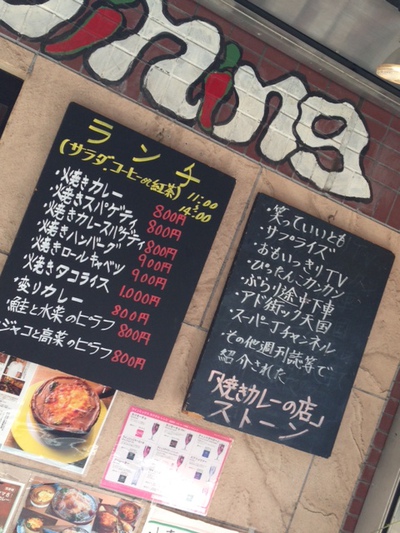 ning
ランチ
(サラダ・コーヒーor紅茶)
11:00
〜
14:00
・焼きカレー 800円
・焼きスパゲティ 800円
・焼きカレースパゲッティ 800円
・焼きハンバーグ 900円
・焼きロールキャベツ 900円
・焼きタコライス 1,000円
・盛りカレー 800円
・鮭と水菜のピラフ 800円
ジャコと高菜のピラフ 800円
・笑っていいとも
・サプライズ
・おもいっきりTV
・ぴったんこカンカン
・ぶらり途中下車
・アド街ック天国
・スーパーJチャンネル
・その他週刊誌等で
紹介された
「焼きカレーの店」
ストーン